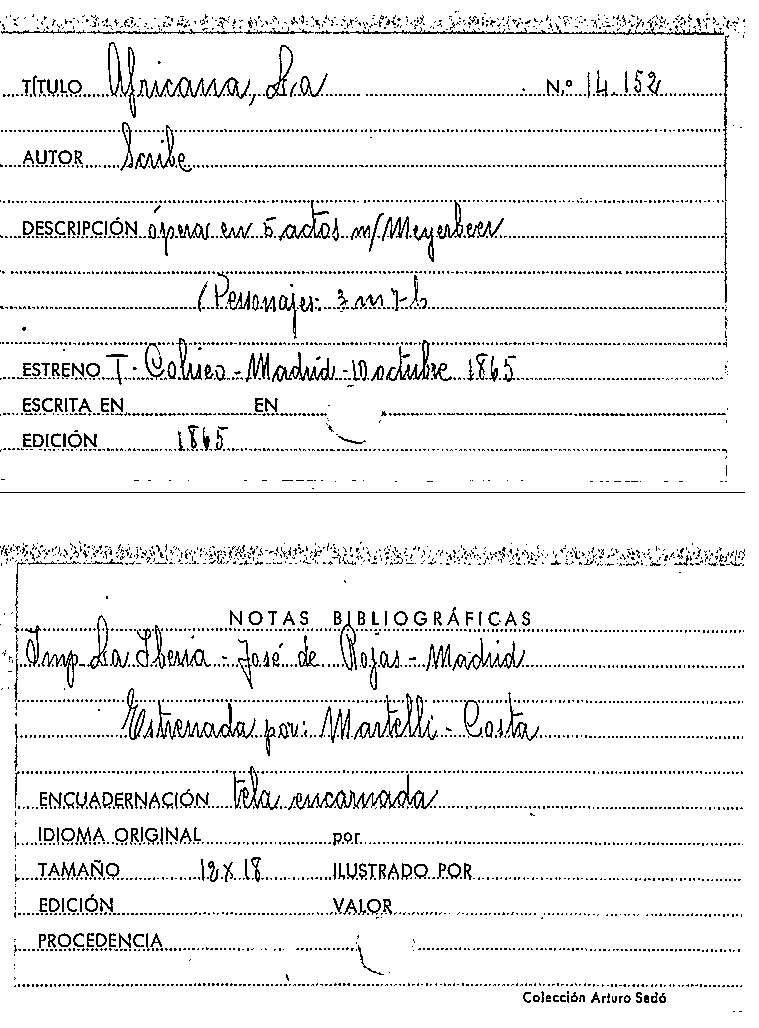 TÍTULO Africana, La N.º 14.152
AUTOR Scribe
DESCRIPCIÓN ópera en 5 actos m/Meyerbeer
(Personajes: 3 m 7 h
ESTRENO T. Coliseo - Madrid - 10 octubre 1865
ESCRITA EN EN
EDICIÓN 1865
NOTAS BIBLIOGRÁFICAS
Imp La Iberia - José de Rojas - Madrid
Estrenada por: Martelli - Costa
ENCUADERNACIÓN tela encarnada
IDIOMA ORIGINAL por
TAMAÑO 12 X 18 ILUSTRADO POR
EDICIÓN VALOR
PROCEDENCIA
Colección Arturo Sedó